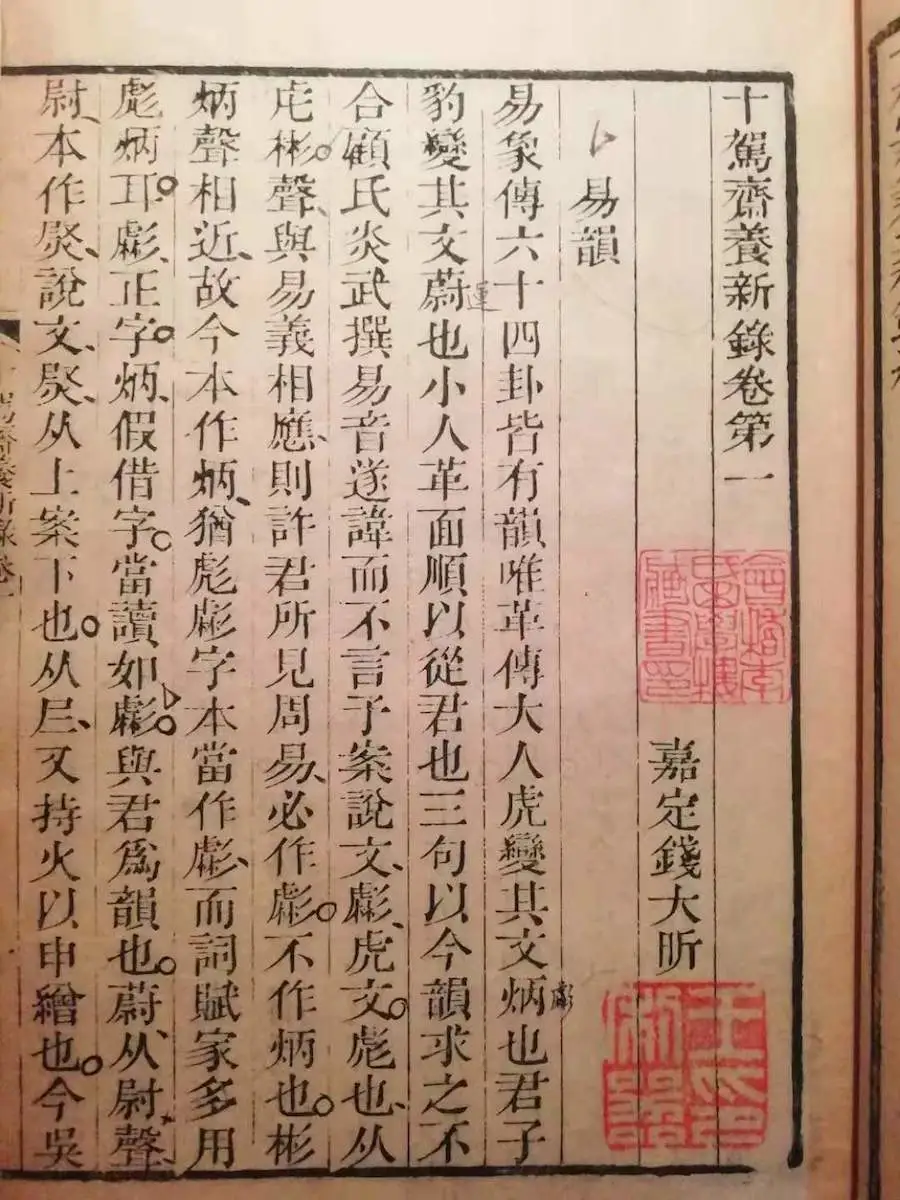 十駕齋養新錄卷第一
嘉定錢大昕
易韻
易象傳六十四卦皆有韻唯革傳大人虎變其文炳也君子
豹變其文蔚也小人革面順以從君也三句以今韻求之不
合顧氏炎武撰易音遂諱而不言予案說文彪虎文彪也从
虎彬聲與易義相應則許君所見周易必作彪不作炳也彬
炳聲相近故今本作炳猶彪彪字本當作彪而詞賦家多用
彪炳耳彪正字炳假借字當讀如彪與君爲韻也蔚从尉聲
尉本作㷉說文㷉从上案下也从𡰥又持火以申繒也今吳